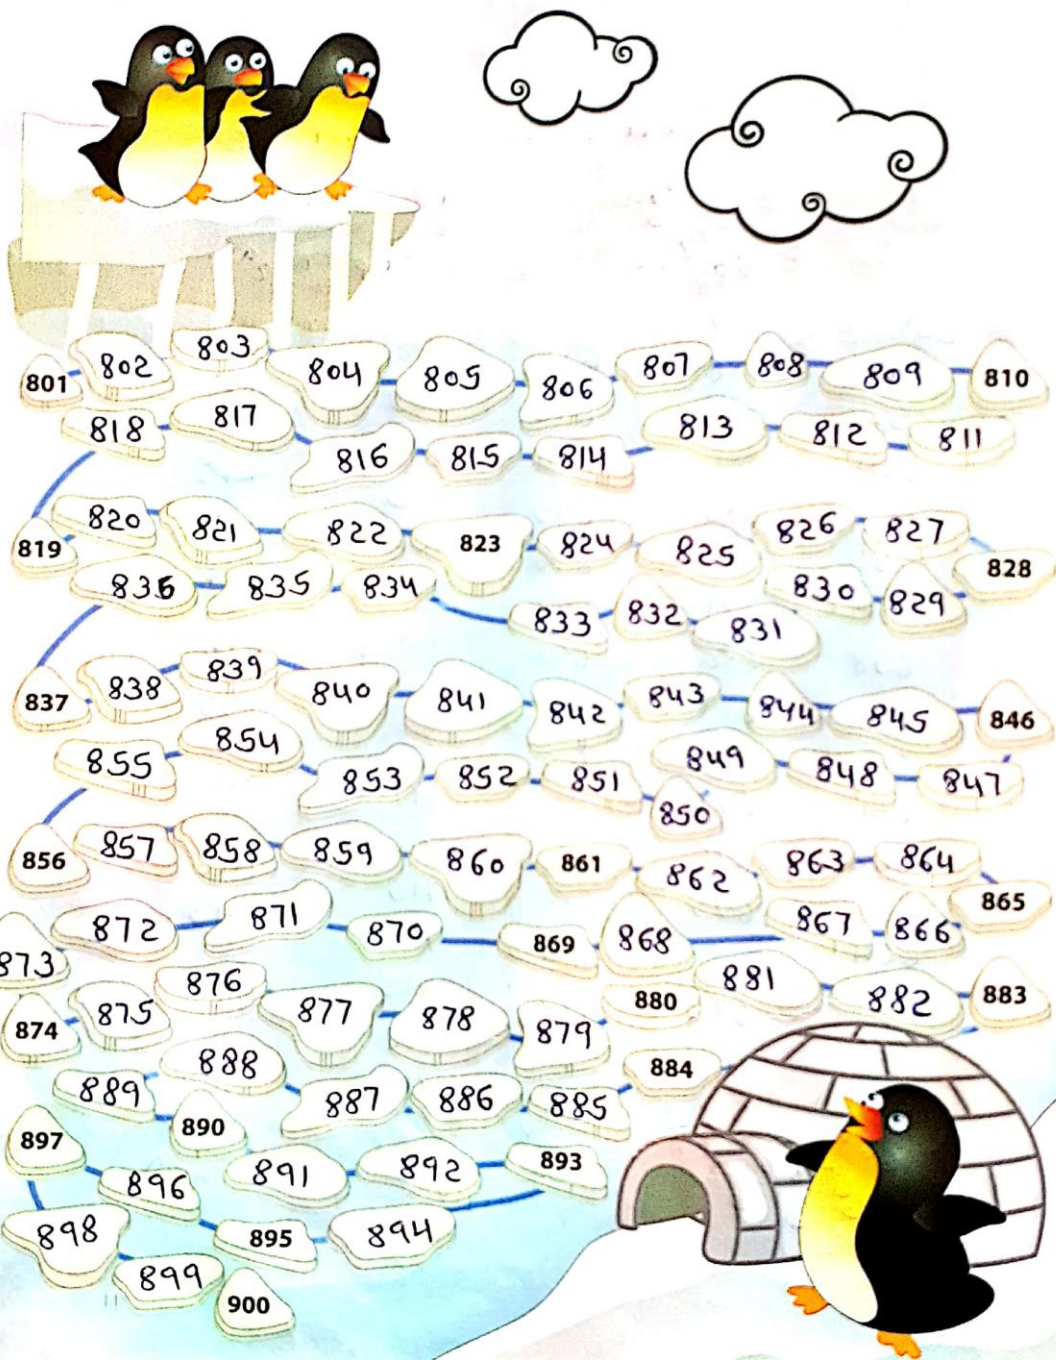 801 802 803 804 805 806 807 808 809 810
818 817 816 815 814 813 812 811
819 820 821 822 823 824 825 826 827 828
836 835 834 833 832 831 830 829
837 838 839 840 841 842 843 844 845 846
855 854 853 852 851 850 849 848 847
856 857 858 859 860 861 862 863 864 865
873 872 871 870 869 868 867 866
874 875 876 877 878 879 880 881 882 883
889 888 887 886 885 884
897 890
896 891 892 893
898 895 894
899 900